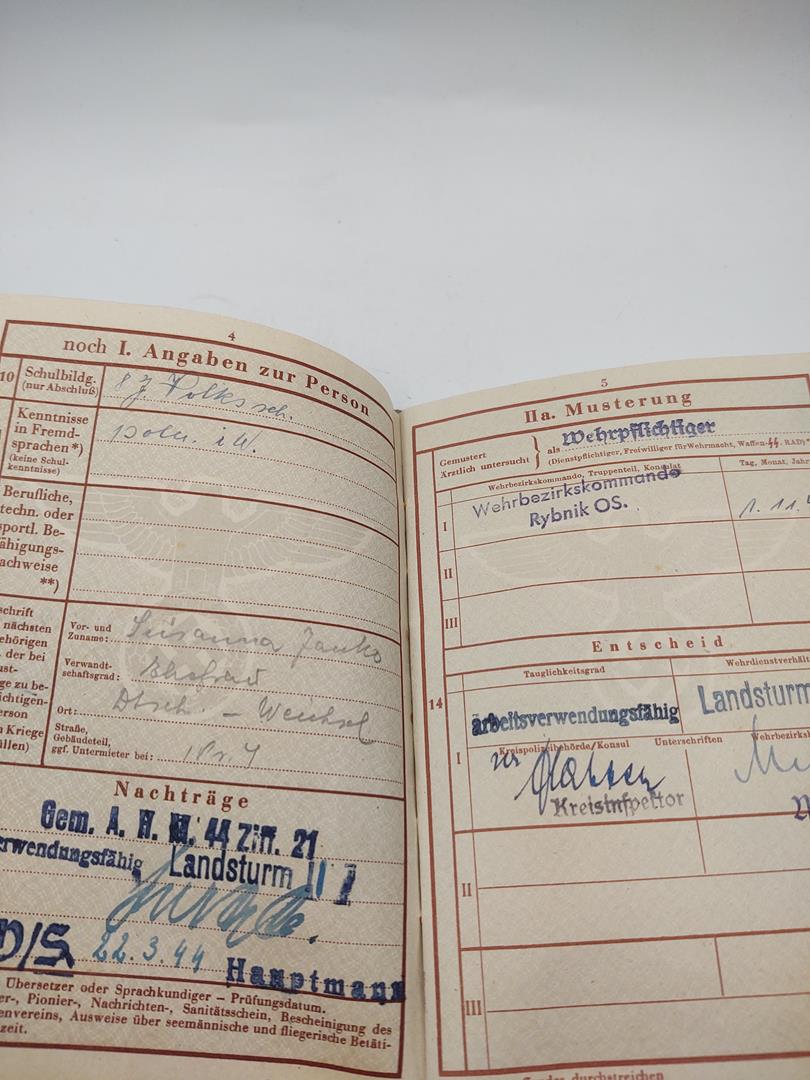 4
noch I. Angaben zur Person
10
Schulbildg.
(nur Abschluß)
8 J. Volkssch.
Kenntnisse
in Fremd-
sprachen*)
(keine Schul-
kenntnisse)
poln. i. W.
Berufliche,
techn. oder
sportl. Be-
fähigungs-
nachweise
**)
schrift
nächsten
ehörigen
der bei
ust-
ge zu be-
ichtigen-
erson
n Kriege
üllen)
Vor- und
Zuname:
Susanna Janko
Verwandt-
schaftsgrad:
Ehefrau
Ort:
Dtsch. - Weichsel
Straße,
Gebäudeteil,
ggf. Untermieter bei:
Nr. 4
Nachträge
Gem. A. H. M. 44 Ziff. 21
erwendungsfähig Landsturm II
D/S 22.3.44 Hauptmann
Übersetzer oder Sprachkundiger – Prüfungsdatum.
er-, Pionier-, Nachrichten-, Sanitätsschein, Bescheinigung des
envereins, Ausweise über seemännische und fliegerische Betäti-
zeit.
5
IIa. Musterung
Gemustert
Ärztlich untersucht
als Wehrpflichtiger
(Dienstpflichtiger, Freiwilliger für Wehrmacht, Waffen-SS, RAD)*
Wehrbezirkskommando, Truppenteil, Konsulat
Tag, Monat, Jahr
I
Wehrbezirkskommando
Rybnik OS.
1. 11. 4
II
III
Entscheid
Tauglichkeitsgrad
Wehrdienstverhält
14
arbeitsverwendungsfähig
Landsturm
I
Kreispolizeibehörde/Konsul
Unterschriften
Wehrbezirks
Kreisinspektor
II
III
durchstreichen